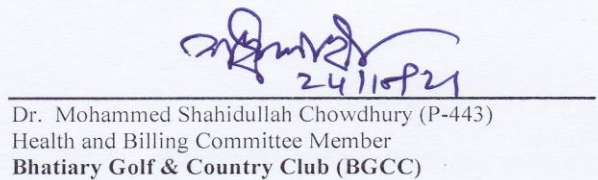 Dr. Mohammed Shahidullah Chowdhury (P-443)
Health and Billing Committee Member
Bhatiary Golf & Country Club (BGCC)